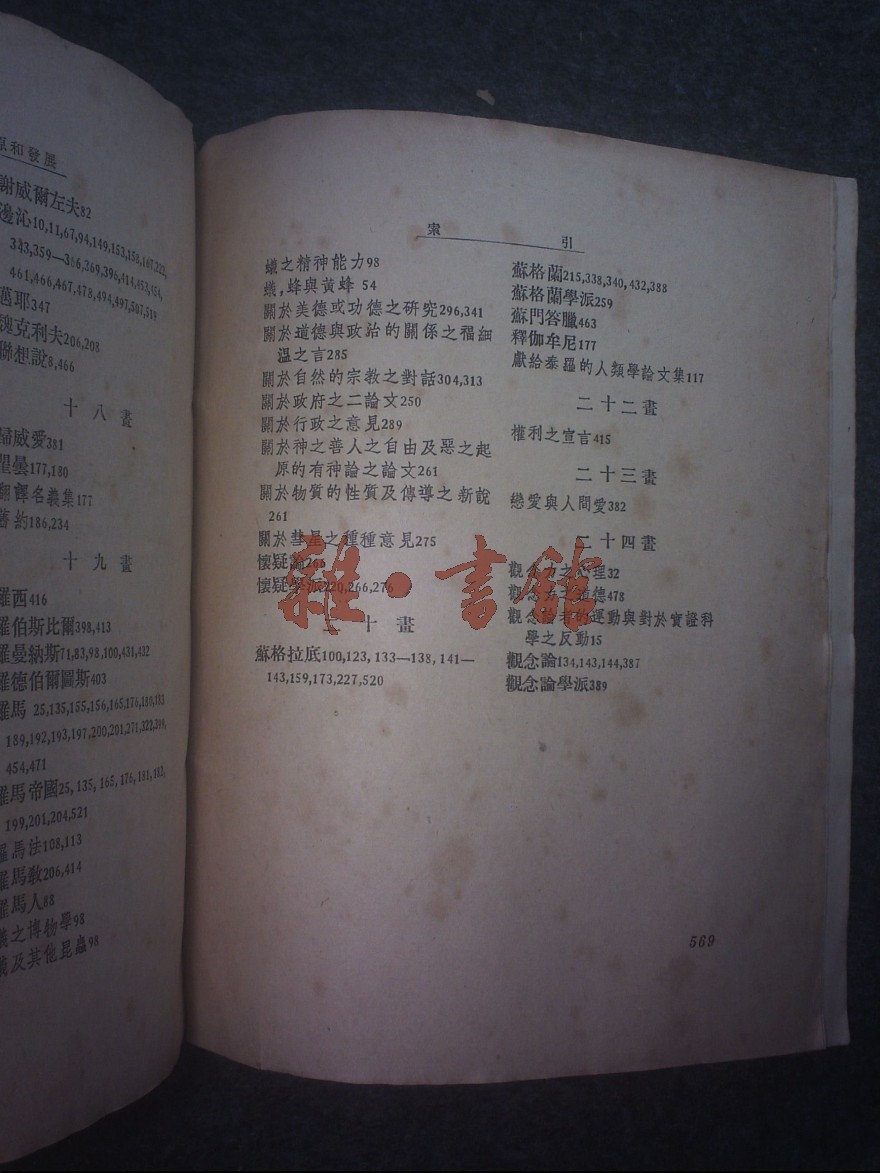 和發展
謝威爾左夫82
邊沁10,11,67,94,149,153,158,167,222,
343,359—366,369,396,414,453,454,
461,466,467,478,494,497,507,519
邁耶347
魏克利夫206,208
聯想說8,466
十八畫
歸威愛381
瞿曇177,180
翻譯名義集177
舊約186,234
十九畫
羅西416
羅伯斯比爾398,413
羅曼納斯71,83,98,100,431,432
羅德伯爾圖斯403
羅馬 25,135,155,156,165,176,180,183
189,192,193,197,200,201,271,322,398,
454,471
羅馬帝國25,135,165,176,181,182,
199,201,204,521
羅馬法108,113
羅馬教206,414
羅馬人88
蟻之博物學98
及其他昆蟲98
索引
蟻之精神能力98
蟻,蜂與黃蜂 54
關於美德或功德之研究296,341
關於道德與政治的關係之福細
溫之言285
關於自然的宗教之對話304,313
關於政府之二論文250
關於行政之意見289
關於神之善人之自由及惡之起
原的有神論之論文261
關於物質的性質及傳導之新說
261
關於彗星之種種意見275
懷疑論266
懷疑學派220,266,276
二十畫
蘇格拉底100,123,133—138,141—
143,159,173,227,520
蘇格蘭215,338,340,432,388
蘇格蘭學派259
蘇門答臘463
釋伽牟尼177
獻給泰羅的人類學論文集117
二十二畫
權利之宣言415
二十三畫
戀愛與人間愛382
二十四畫
觀念力之心理32
觀念力之道德478
觀念論者的運動與對於實證科
學之反動15
觀念論134,143,144,387
觀念論學派389
雜·書館
569